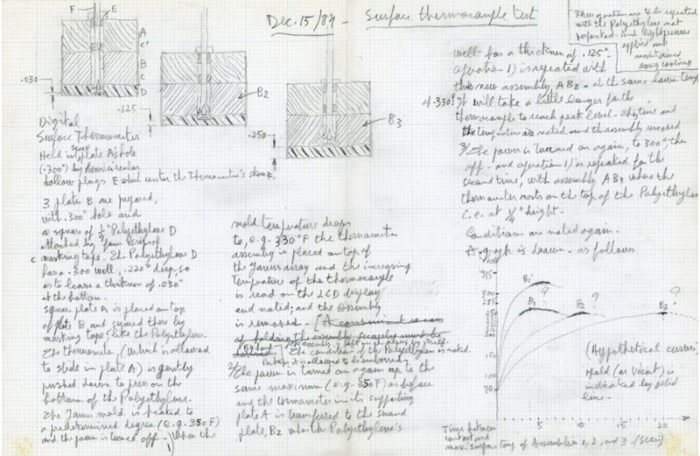 Dec. 15/87 - Surface thermocouple test
These operation are to be repeated
with the Polyethylene not
perforated. And light pressure
applied and
maintained
during cooling
F
E
A
C'
B
C
D
.030
.125
B2
.250
B3
Digital
Surface Thermometer
Held in plate A's hole
(.300") by semicircular
hollow plugs E which center the Thermometer's clamp,
3 plate B are prepared,
with .300" hole and
a square of 1/2" Polyethylene D
attached by
masking tape. The Polyethylene D
has a .300 well, .220" deep, so
as to leave a thickness of .030"
at the bottom.
Square plate A is placed on top
of plate B and secured there by
masking tape like the Polyethylene.
The thermometer, (which is allowed
to slide in plate A) is gently
pushed down to press on the
bottom of the Polyethylene.
The James mold is heated to
a predetermined degree (e.g. 350 F)
and the power is turned off. When the
mold temperature drops
to, e.g. 330° F the thermometer
assembly is placed on top of
the and the increasing
Temperature of the thermocouple
is read on the LCD display
and noted; and the assembly
is removed.
of holding the assembly
The condition of the Polyethylene is noted.
2/ The power is turned on again up to the
same maximum (e.g. 350 F) as before
and the thermometer in its supporting
plate A is transferred to the second
plate, B2 where the Polyethylene's
well has a thickness of .125".
operation 1) is repeated with
this new assembly AB2 - at the same
330° It will take a little longer for the
thermocouple to reach peak level. The time and
the temperature are noted and the assembly removed
3/ The power is turned on again, to 300°, then
off - and operation 1) is repeated for the
second time, with assembly AB3 where the
thermometer rests on the top of the Polyethylene
i.e. at 1/4" height.
Conditions are noted again.
A graph is drawn - as follows
?
?
?
B1
B2
B3
70
5
10
15
20
(Hypothetical curves)
Mold (or Vicat) is
indicated by dotted
line.
Time between
contact and
max. surface temp of Assemblies 1, 2, and 3. (Secs)